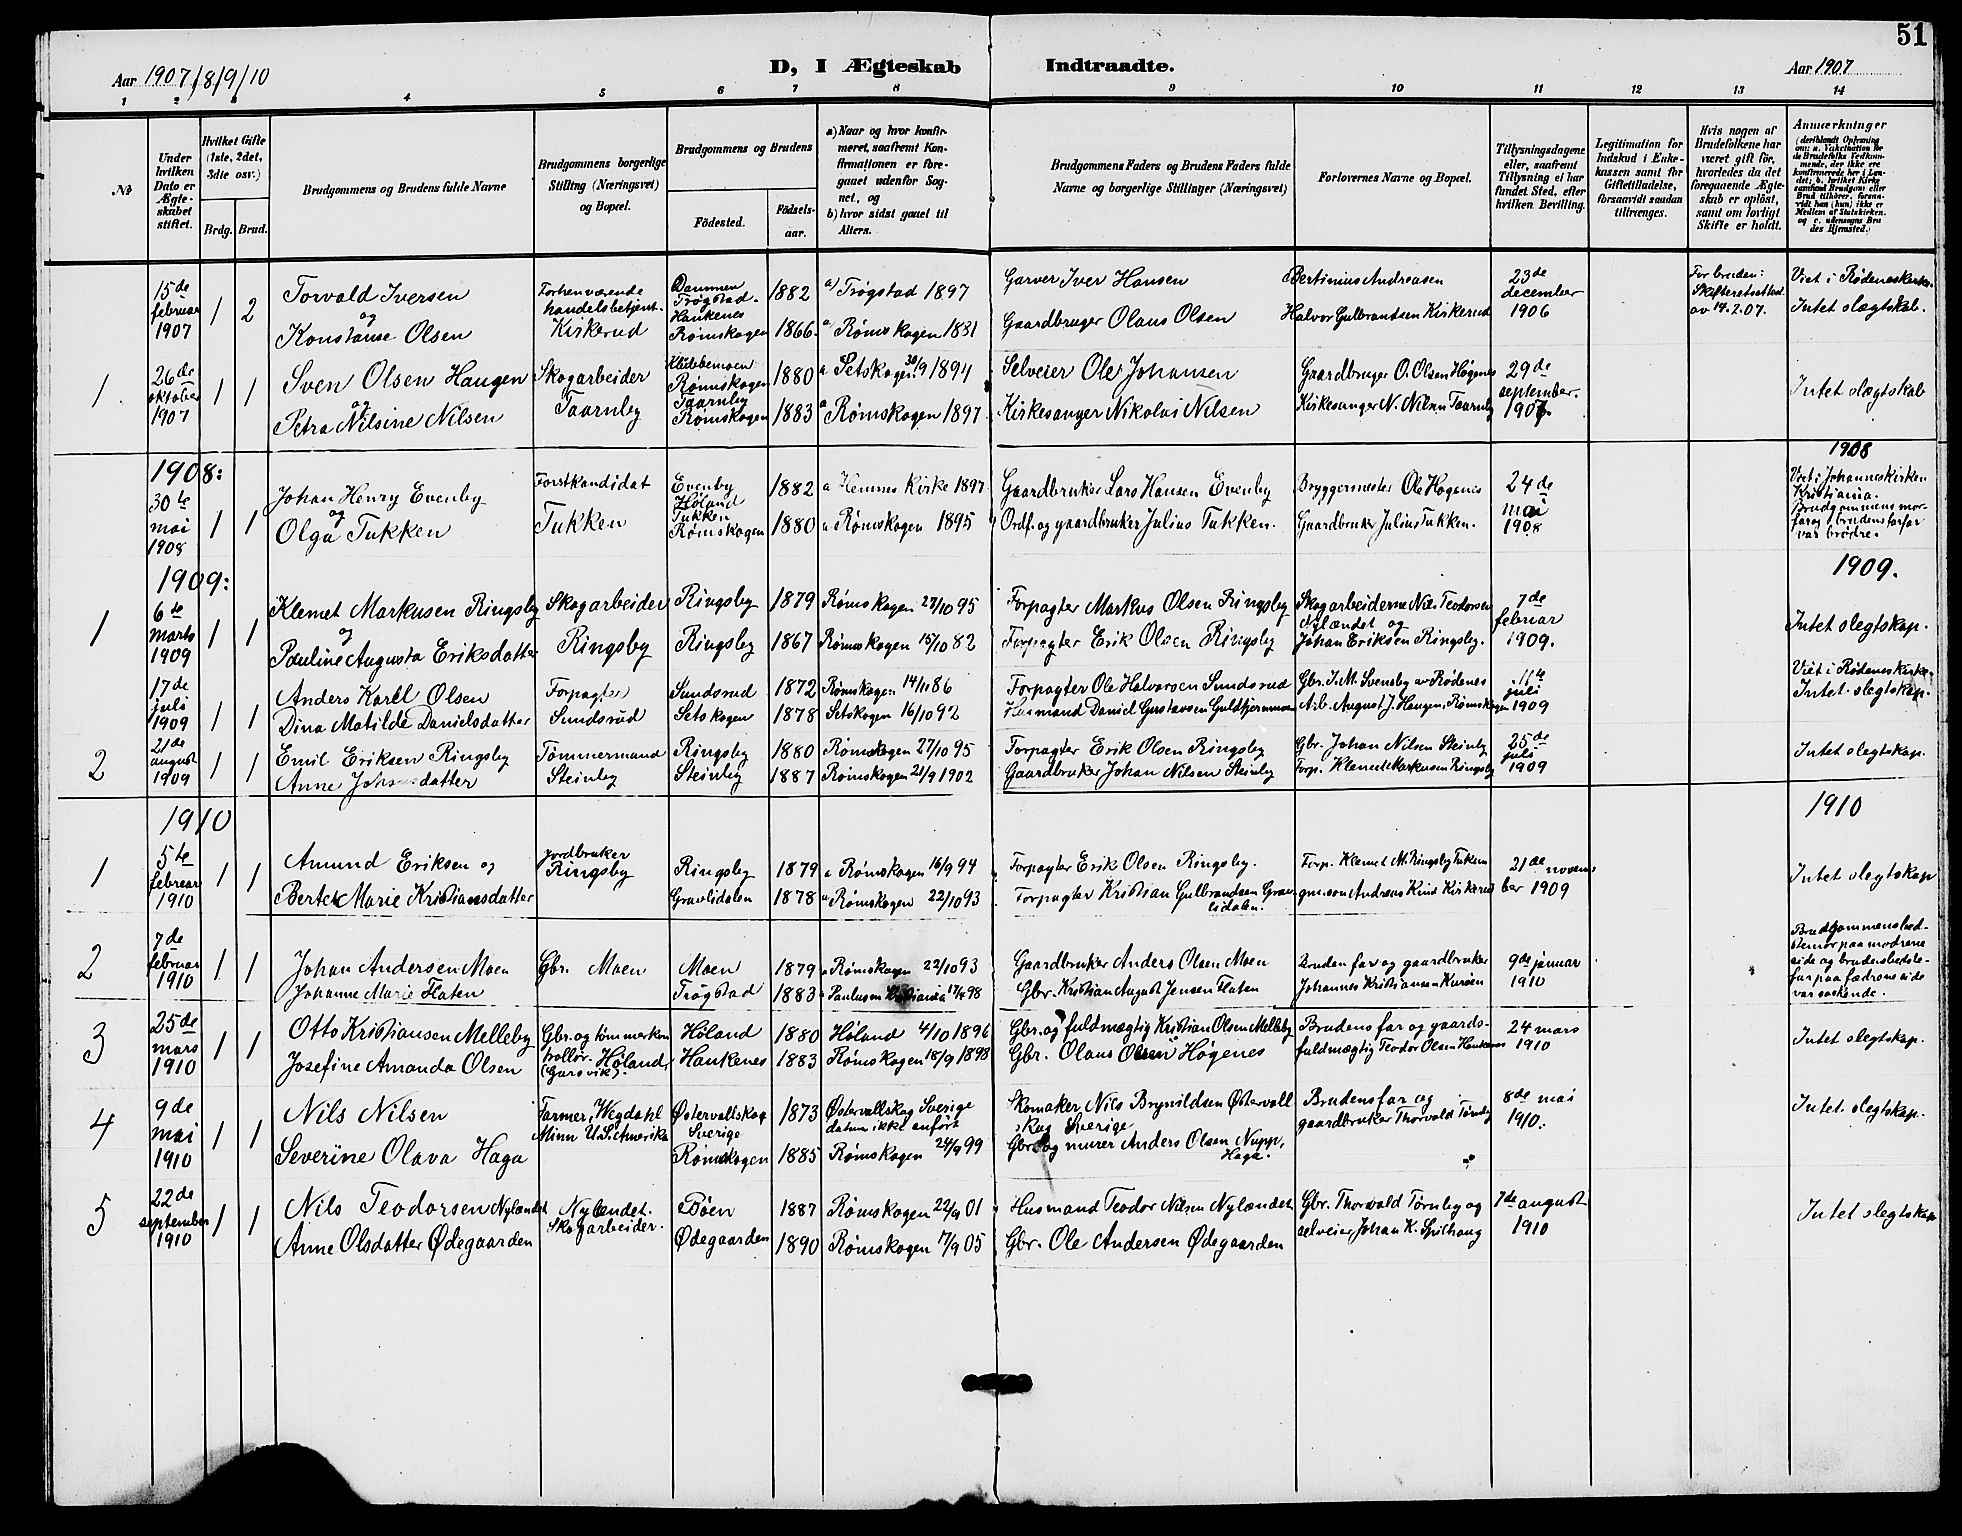 51
Aar 1907/8/9/10
D, I Ægteskab Indtraadte.
Aar 1907
1 2 3 4 5 6 7 8 9 10 11 12 13 14
№
Under hvilken Dato er Ægteskabet stiftet.
Hvilket Gifte (1ste, 2det, 3die osv.)
Brdg. Brud.
Brudgommens og Brudens fulde Navne
Brudgommens borgerlige Stilling (Næringsvei) og Bopæl.
Brudgommens og Brudens
Födested.
Födselsaar.
a) Naar og hvor konfirmeret, saafremt Konfirmationen er foregaaet udenfor Sognet, og
b) hvor sidst gaaet til Alters.
Brudgommens Faders og Brudens Faders fulde Navne og borgerlige Stillinger (Næringsvei)
Forlovernes Navne og Bopæl.
Tillysningsdagene eller, saafremt Tillysning ei har fundet Sted, efter hvilken Bevilling.
Legitimation for Indskud i Enkekassen samt for Giftetilladelse, forsaavidt saadan tiltrænges.
Hvis nogen af Brudefolkene har været gift för, hvorledes da det foregaaende Ægteskab er oplöst, samt om lovligt Skifte er holdt.
Anmærkninger
15de februar 1907 1 2 Torvald Iversen og Konstanse Olsen
Forhenværende handelsbetjent. Kirkerud
Dammen Trøgstad. 1882 a) Trøgstad 1897
Haukenes Rømskogen 1866. a Rømskogen 1881
Garver Iver Hansen
Gaardbruger Olaus Olsen
Bertinius Andreasen
Halvor Gulbrandsen Kirkerud
23de december 1906
For bruden: Skifteretsattest av 14.2.07.
Viet i Rødeneskirke. Intet slægtskab.
1. 26de oktober 1907 1 1 Sven Olsen Haugen og Petra Nilsine Nilsen
Skogarbeider Taarnby
Rømskogen 1880 a Setskogen 30/9 1894
Taarnby Rømskogen 1883 a Rømskogen 1897
Selveier Ole Johansen
Kirkesanger Nikolai Nilsen
Gaardbruger O. Olsen Høgnes
Kirkesanger N. Nilsen Taarnby
29de september. 1907
Intet slægtskab
1908:
1908
30te mai 1908 1 1 Johan Henry Evenby og Olga Tukken
Forstkandidat Tukken
Evenby Høland 1882 a Hemnes Kirke 1897
Tukken Rømskogen 1880 a Rømskogen 1895
Gaardbruker Lars Hansen Evenby
Ordf. og gaardbruker Julius Tukken.
Bryggermester Ole Hogenes
Gaardbruker Julius Tukken.
24de mai 1908
Viet i Johanneskirken Kristiania. Brudgommens morfar og brudens farfar var brødre.
1909:
1909.
1 6te marts 1909 1 1 Klemet Markusen Ringsby og Pauline Augusta Eriksdatter
Skogarbeider Ringsby
Ringsby 1879 Rømskogen 27/10 95
Ringsby 1867 Rømskogen 15/10 82
Forpagter Markus Olsen Ringsby
Forpagter Erik Olsen Ringsby
Skogarbeiderne Nils Teodorsen Nylændet og Johan Eriksen Ringsby.
7de februar 1909.
Intet slegtskap.
17de juli 1909 1 1 Anders Karel Olsen
Dina Matilde Danielsdatter
Forpagter Sundsrud
Sundsrud 1872 Rømskogen 14/11 86
Setskogen 1878 Setskogen 16/10 92
Forpagter Ole Halvorsen Sundsrud
Husmand Daniel Gustavsen
Gbr. I. M. Svensby av Rødenes
August J. Haugen, Rømskogen
11te juli 1909
Viet i Rødeneskirke. Intet slegtskap.
2 21de august 1909 1 1 Emil Eriksen Ringsby
Anne Johansdatter
Tømmermand Steinby
Ringsby 1880 Rømskogen 27/10 95
Steinby 1887 Rømskogen 21/9 1902
Forpagter Erik Olsen Ringsby
Gaardbruker Johan Nilsen Steinby
Gbr. Johan Nilsen Steinby
Forp. Klemet Markusen Ringsby
25de juli 1909
Intet slegtskap.
1910
1910
1 5te februar 1910 1 1 Amund Eriksen og
Berte Marie Kristiansdatter
Jordbruker Ringsby
Ringsby 1879 a Rømskogen 16/9 94
Gravlidalen 1878 a Rømskogen 22/10 93
Forpagter Erik Olsen Ringsby.
Forpagter Kristian Gulbrandsen Gravlidalen.
Forp. Klemet M. Ringsby Tukken
Andreas Kirkerud
21de november 1909
Intet slegtskap
2 7de februar 1910 1 1 Johan Andersen Moen
Johanne Marie Flaten
Gbr. Moen
Moen 1879 a Rømskogen 22/10 93
Trøgstad 1883 a Paulus
Gaardbruker Anders Olsen Moen
Gbr. Kristian August Jensen Flaten
Bruden far og gaardbruker
Johannes Kristiansen Kurøen
9de januar 1910
Brudgommens bedstemor paa modrene side og brudens bedstefar paa fædrene side var søskende.
3 25de mars 1910 1 1 Otto Kristiansen Melleby
Josefine Amanda Olsen
Gbr. og tømmerkontrollør. Høland, (Garsvik).
Høland 1880 Høland 4/10 1896
Haukenes 1883 Rømskogen 18/9 1898
Gbr. og fuldmægtig Kristian Olsen Melleby
Gbr. Olaus Olsen Høgenes
Brudens far og gaards-
fuldmægtig Teodor Olsen Haukenes
24 mars 1910
Intet slegtskap.
4 9de mai 1910 1 1 Nils Nilsen
Severine Olava Haga
Farmer, Wegdahl Minn U.S. Amerika
Østervallskog Sverige 1873 Østervallskog Sverige datum ikke anført
Rømskogen 1885 Rømskogen 24/9 99
Skomaker Nils Brynildsen Østervallskog Sverige
Gbr. og murer Anders Olsen Nupp, Haga.
Brudens far og
gaardbruker Thorvald Tørnby
8de mai 1910.
Intet slegtskap.
5 22de september 1910 1 1 Nils Teodorsen Nylændet
Anne Olsdatter Ødegaarden
Nylendet. Skogarbeider.
Böen 1887 Rømskogen 22/9 01
Ødegaarden 1890 Rømskogen 17/9 05
Husmand Teodor Nilsen Nylændet
Gbr. Ole Andersen Ødegaarden
Gbr. Thorvald Tørnby og
selveier Johan K. Spilhaug
7de august 1910
Intet slegtskap